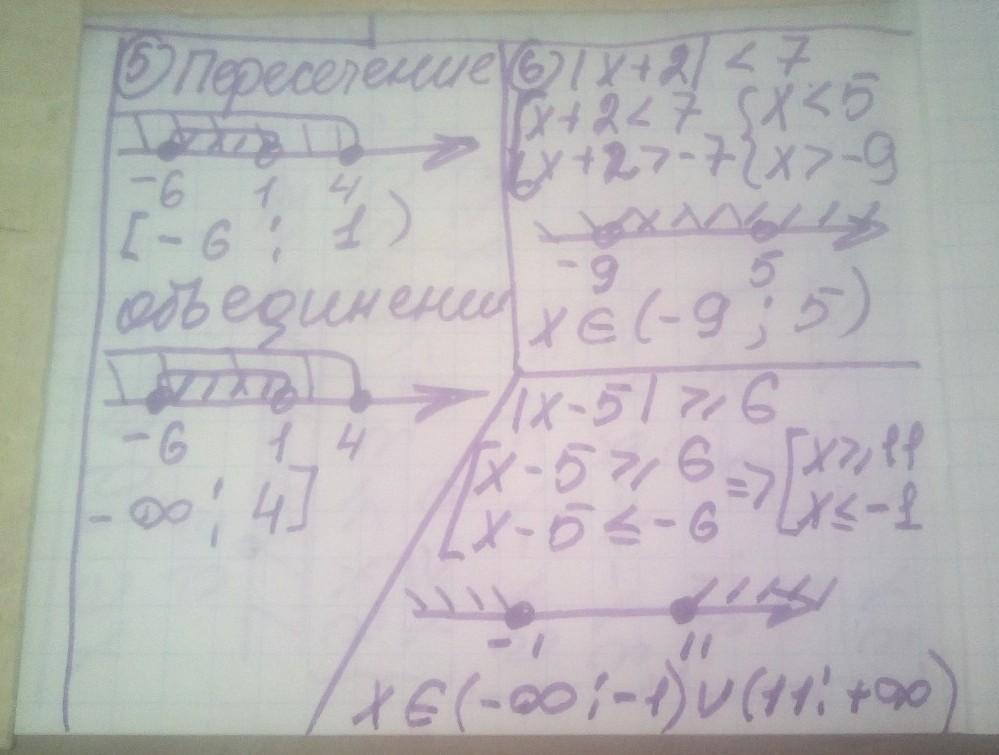 5) Пересечение
-6 1 4
[-6 ; 1)
объединении
-6 1 4
-∞ ; 4]
6) |x+2| < 7
{x+2<7 {x<5
{x+2>-7 {x>-9
-9 5
x∈(-9 ; 5)
|x-5| ⩾ 6
[x-5⩾6 => [x⩾11
[x-5≤-6 [x≤-1
-1 11
x∈(-∞;-1)∪(11;+∞)